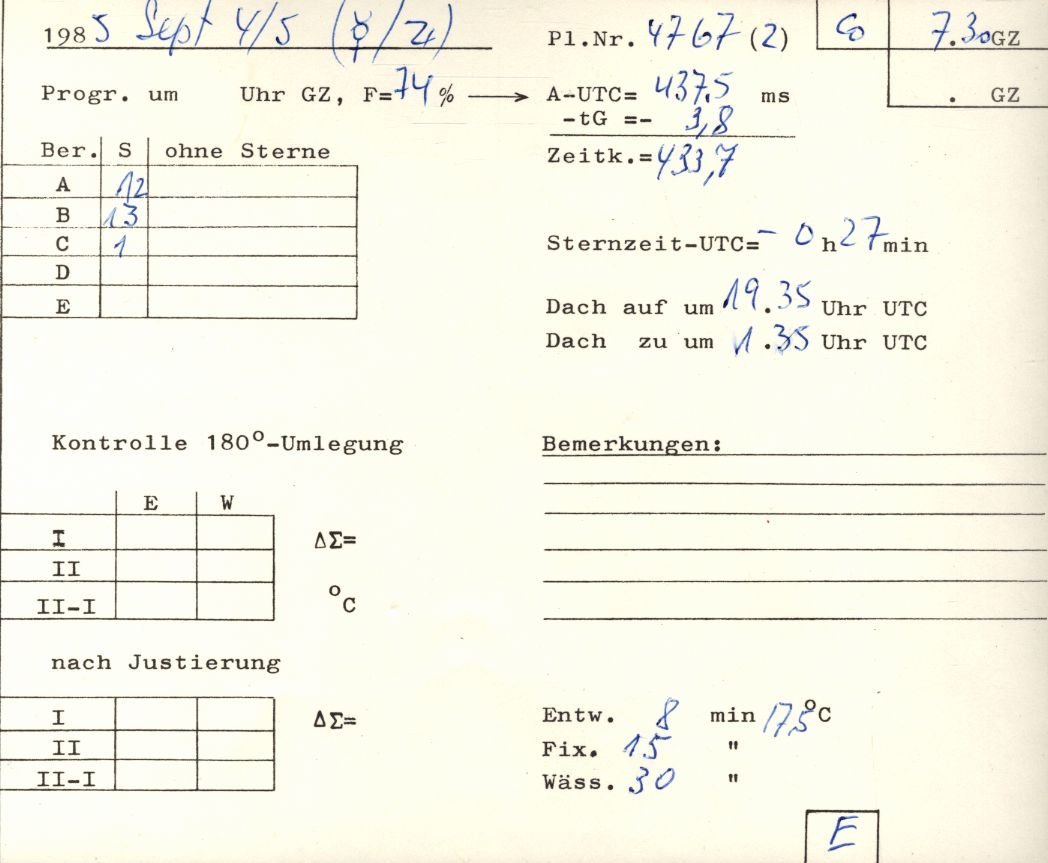 1985 Sept 4/5 (☿/♃)
Pl.Nr. 4767 (2)
Co 7.30 GZ
. GZ
Progr. um Uhr GZ, F=74% → A-UTC= 437.5 ms
-tG =- 3,8
Zeitk.=433,7
Ber. S ohne Sterne
A 12
B 13
C 1
D
E
Sternzeit-UTC=- 0 h 27 min
Dach auf um 19.35 Uhr UTC
Dach zu um 1.35 Uhr UTC
Kontrolle 180°-Umlegung
E W
I ΔΣ=
II
II-I °C
Bemerkungen:
nach Justierung
I ΔΣ=
II
II-I
Entw. 8 min 17,5 °C
Fix. 15 "
Wäss. 30 "
E